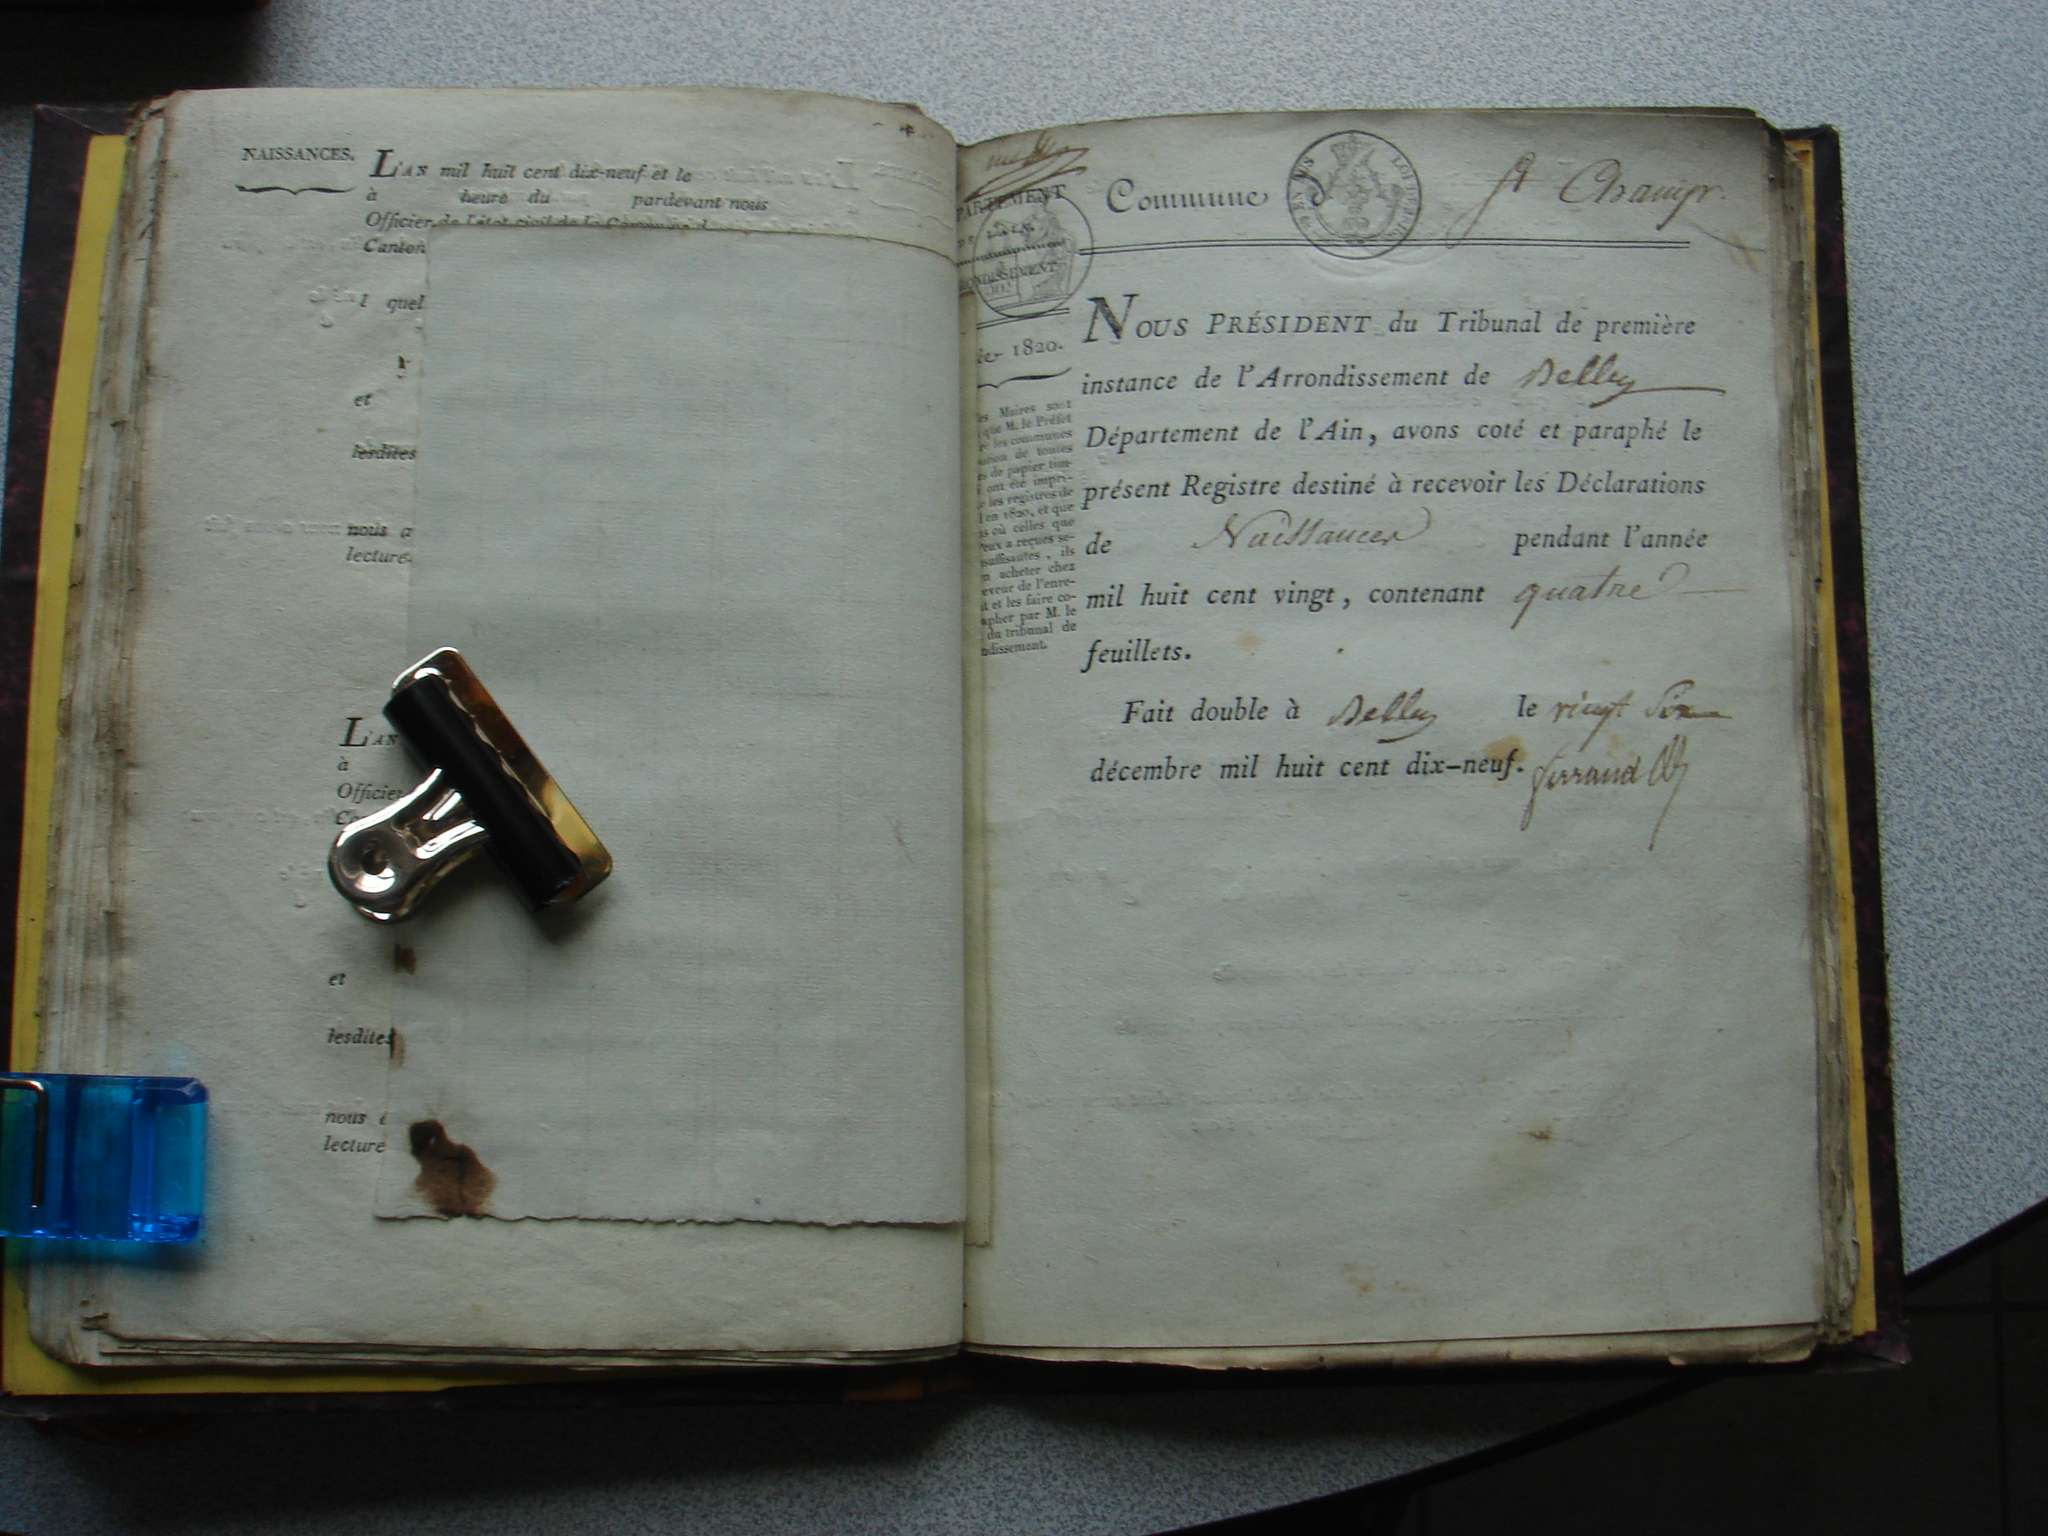 NAISSANCES.
L'AN mil huit cent dix-neuf et le
à heure du pardevant nous
Officier de l'état civil de la Commune d
Canton
l quel
et
lesdites
nous a
lecture
L'AN
à
Officier
et
lesdites
nous
lecture
PARTEMENT
DE L'AIN.
ONDISSEMENT
1820.
es Maires sont
que M. le Préfet
les communes
de toutes
de papier tim-
ont été impri-
les registres de
en 1820, et que
où celles que
eux a reçues se-
suffisantes, ils
acheter chez
eveur de l'enre-
t et les faire co-
apher par M. le
du tribunal de
ndissement.
Commune St Champ
NOUS PRÉSIDENT du Tribunal de première
instance de l'Arrondissement de Belley
Département de l'Ain, avons coté et paraphé le
présent Registre destiné à recevoir les Déclarations
de Naissances pendant l'année
mil huit cent vingt, contenant quatre
feuillets.
Fait double à Belley le vingt Six
décembre mil huit cent dix-neuf. ferrand